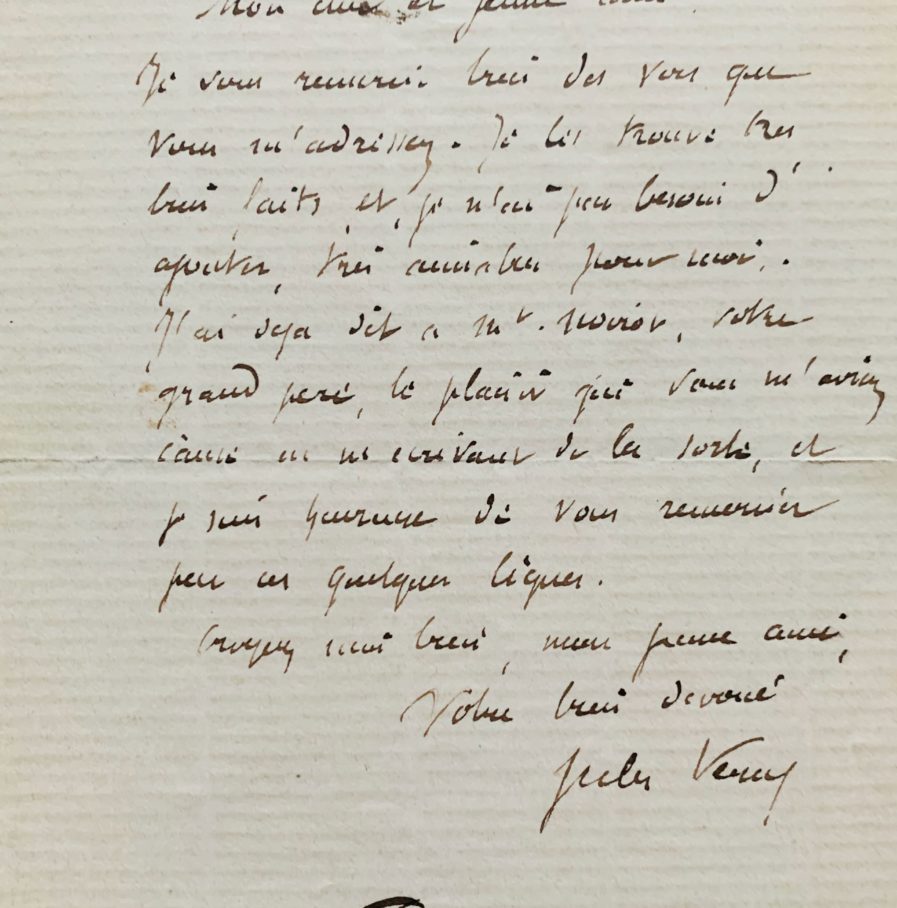 Mon cher et jeune ami
Je vous remercie bien des vers que
vous m'adressez. Je les trouve très
bien faits et, je n'ai pas besoin d'
ajouter, très aimables pour moi.
J'ai déja dit a Mr. , votre
grand père, le plaisir que vous m'aviez
causé en m'écrivant de la sorte, et
je suis heureux de vous remercier
par ces quelques lignes.
Croyez moi bien, mon jeune ami,
Votre bien dévoué
Jules Verne